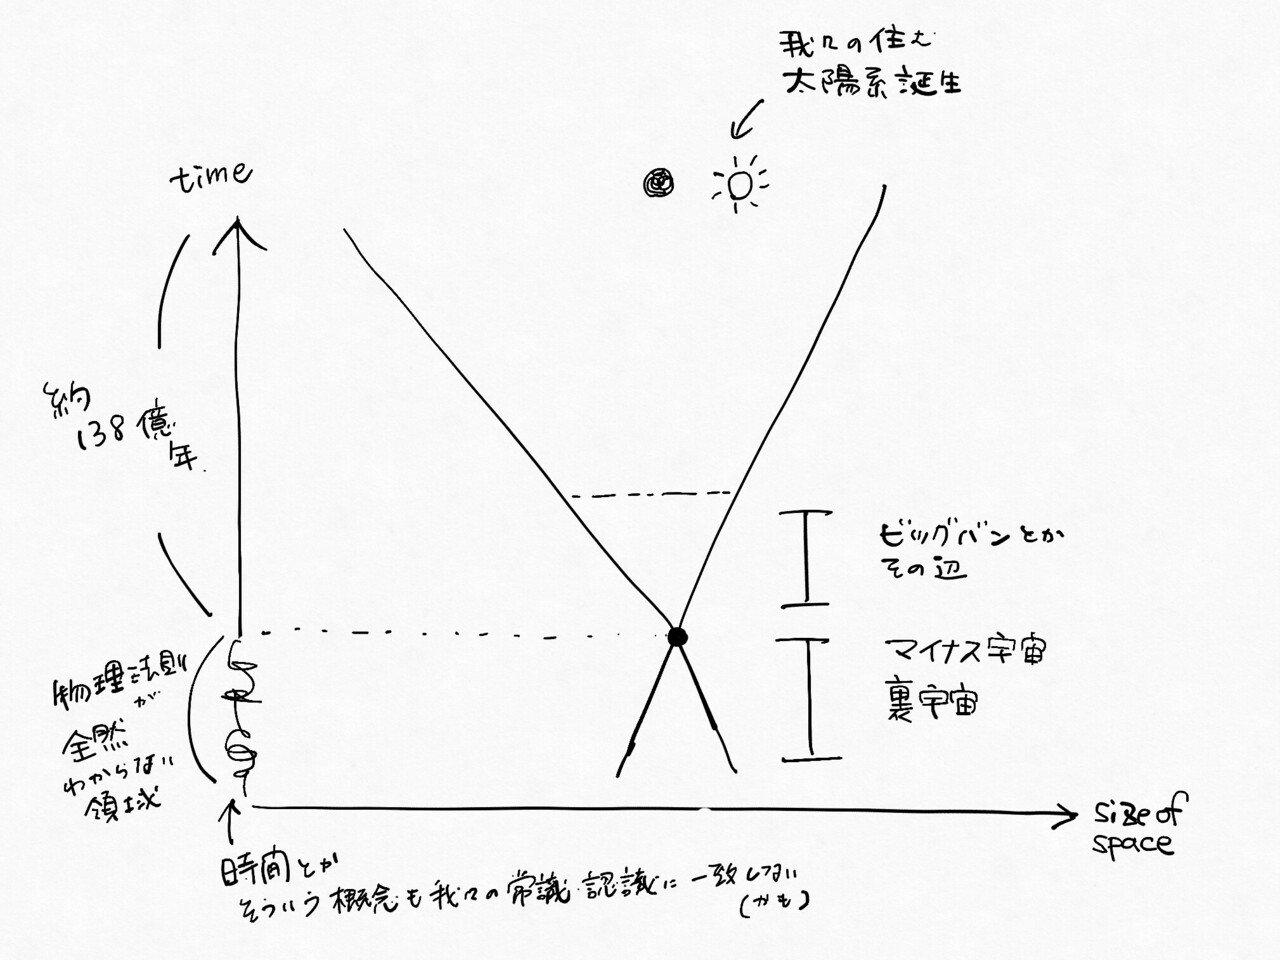 我々の住む
太陽系誕生
time
約
138億
年.
ビッグバンとか
その辺
マイナス宇宙
裏宇宙
物理法則
が
全然
わからない
領域
size of
space
時間とか
そういう概念も我々の常識・認識に一致しない
(かも)